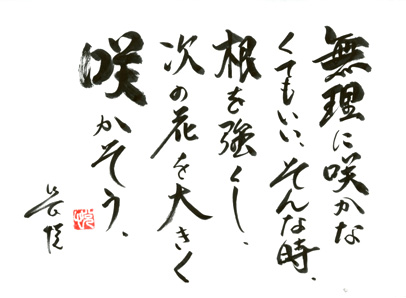 無理に咲かな
くてもいい、そんな時、
根を強くし、
次の花を大きく
咲かそう、